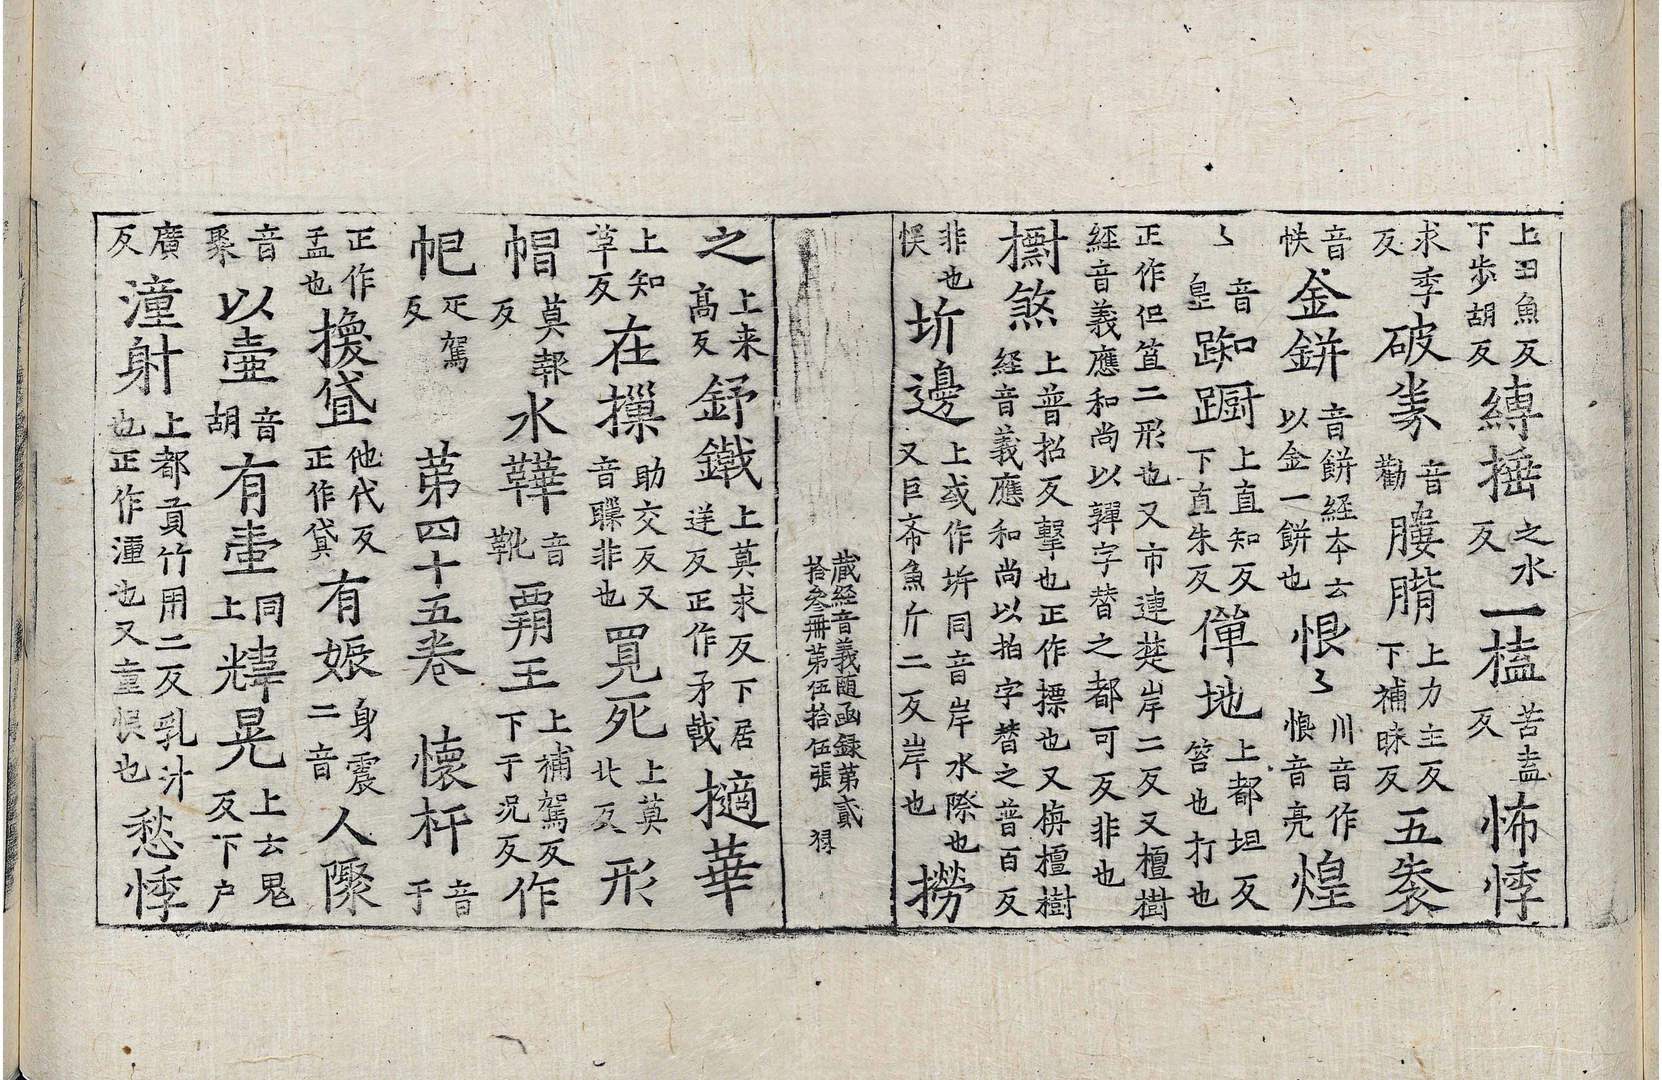 上丑魚反下步胡反縳捶之水反一榼苦盍反怖悸
求季反破䒳音勸膢腊上力主反下補昧反五袠
音帙金鉼音餅経夲云以金一餅也恨〻川音作悢音亮煌
〻音皇踟蹰上直知反下直朱反僤地上都坦反笞也打也
正作但笪二形也又市連𬃊岸二反又檀樹経音義應和尚以亸字替之都可反非也
㯱煞上普招反擊也正作摽也又㮌檀樹経音義應和尚以拍字替之普百反
非也悮圻邊上或作垿同音岸水際也又巨斎魚斤二反岸也撈
蔵経音義随函録第貳拾叄冊第伍拾伍張 㝵
之上来高反𨥤鐵上莫求反下居送反正作矛㦸擿華
上知草反在摷助交反又音䫿非也覓死上莫北反形
帽莫報反水鞾音靴覇王上補駕反下于况反作
帊疋駕反第四十五卷 懷杅音于
正作孟也換貣他代反正作貸有娠身震二音人㘂
音聚以壷音胡有壷同上煒晃上云鬼反下户
廣反湩射上都貢竹用二反乳汁也正作湩也又童恨也愁悸